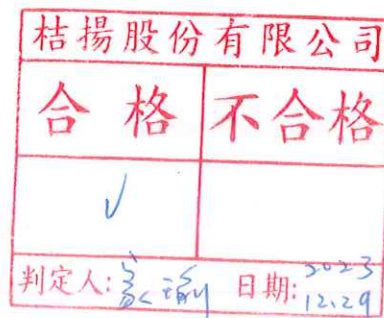 桔揚股份有限公司
合格 不合格
✓
判定人: 日期: 2023
12.29